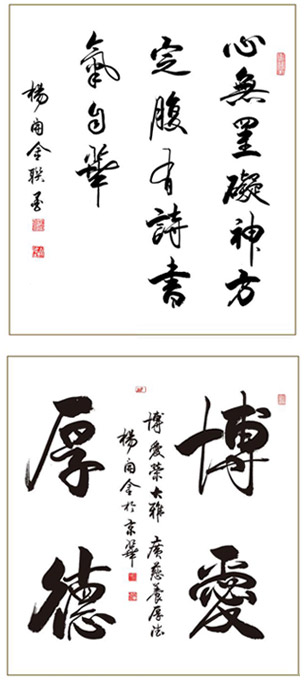 心無罣礙神方
定腹有詩書
氣自華
楊聯墨
博愛
厚德
博愛榮大雅 廣慈養厚德
楊於京華